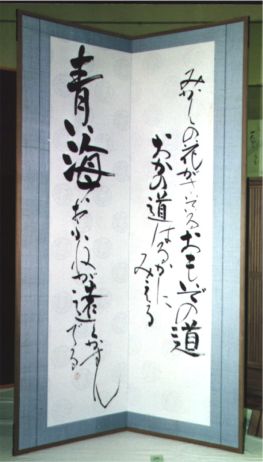 みかんの花がさいてるおもいでの道
おかの道はるかに
みえる
青い海おふねが遠くかすん
でる